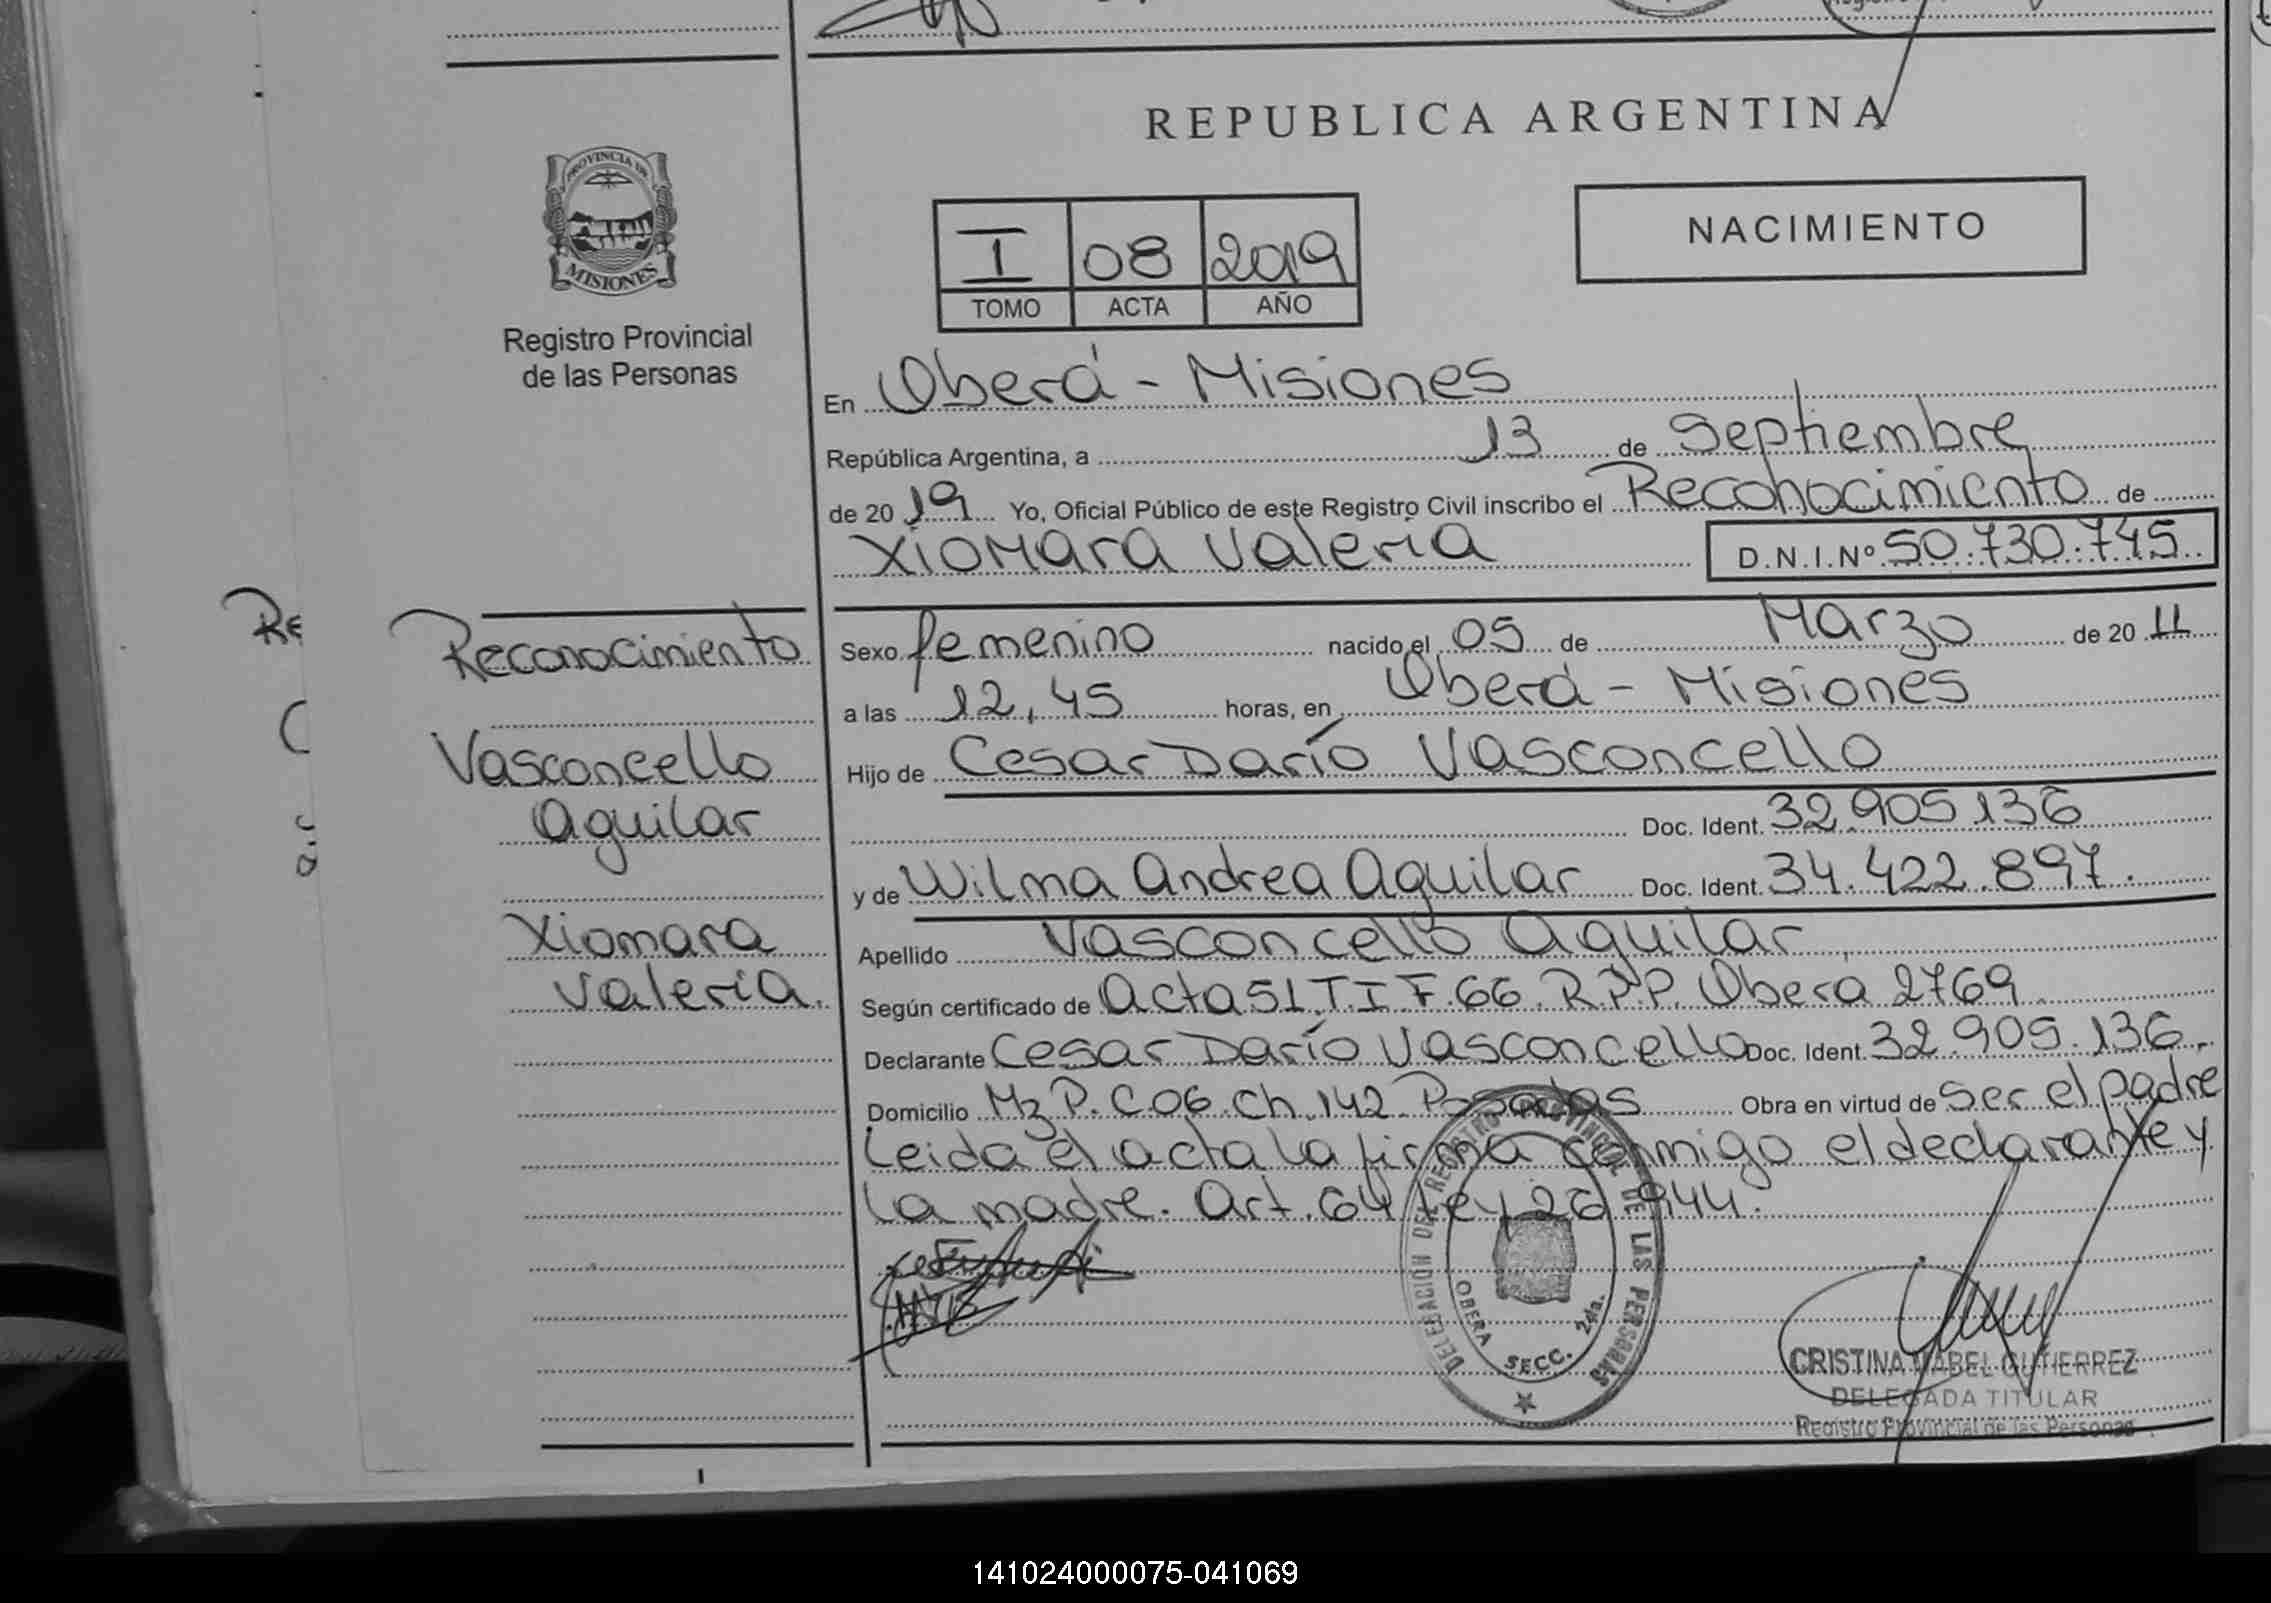 REPUBLICA ARGENTINA
PROVINCIA DE
MISIONES
Registro Provincial
de las Personas
I 08 2019
TOMO ACTA AÑO
NACIMIENTO
En Oberá - Misiones
República Argentina, a 13 de Septiembre
de 2019 Yo, Oficial Público de este Registro Civil inscribo el Reconocimiento de
Xiomara Valeria D.N.I.Nº 50.730.745
Reconocimiento
Vasconcello
Aguilar
Xiomara
Valeria.
Sexo femenino nacido el 05 de Marzo de 2011
a las 12,45 horas, en Oberá - Misiones
Hijo de Cesar Darío Vasconcello
Doc. Ident. 32.905.136
y de Wilma Andrea Aguilar Doc. Ident. 34.422.897.
Apellido Vasconcello Aguilar
Según certificado de Acta 51.T.I F.66.R.P.P. Obera 2769
Declarante Cesar Darío Vasconcello Doc. Ident. 32.905.136.
Domicilio Mz P. C 06.Ch.142 Posadas Obra en virtud de Ser el padre
Leida el acta la firma conmigo el declarante y
la madre. Art. 64 Ley 26.944.
DELEGACIÓN DEL REGISTRO PROVINCIAL DE LAS PERSONAS
OBERA SECC. 2da.
CRISTINA MABEL GUTIERREZ
DELEGADA TITULAR
Registro Provincial de las Personas
141024000075-041069